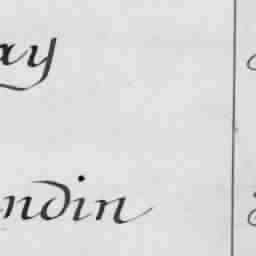 ay
ndin